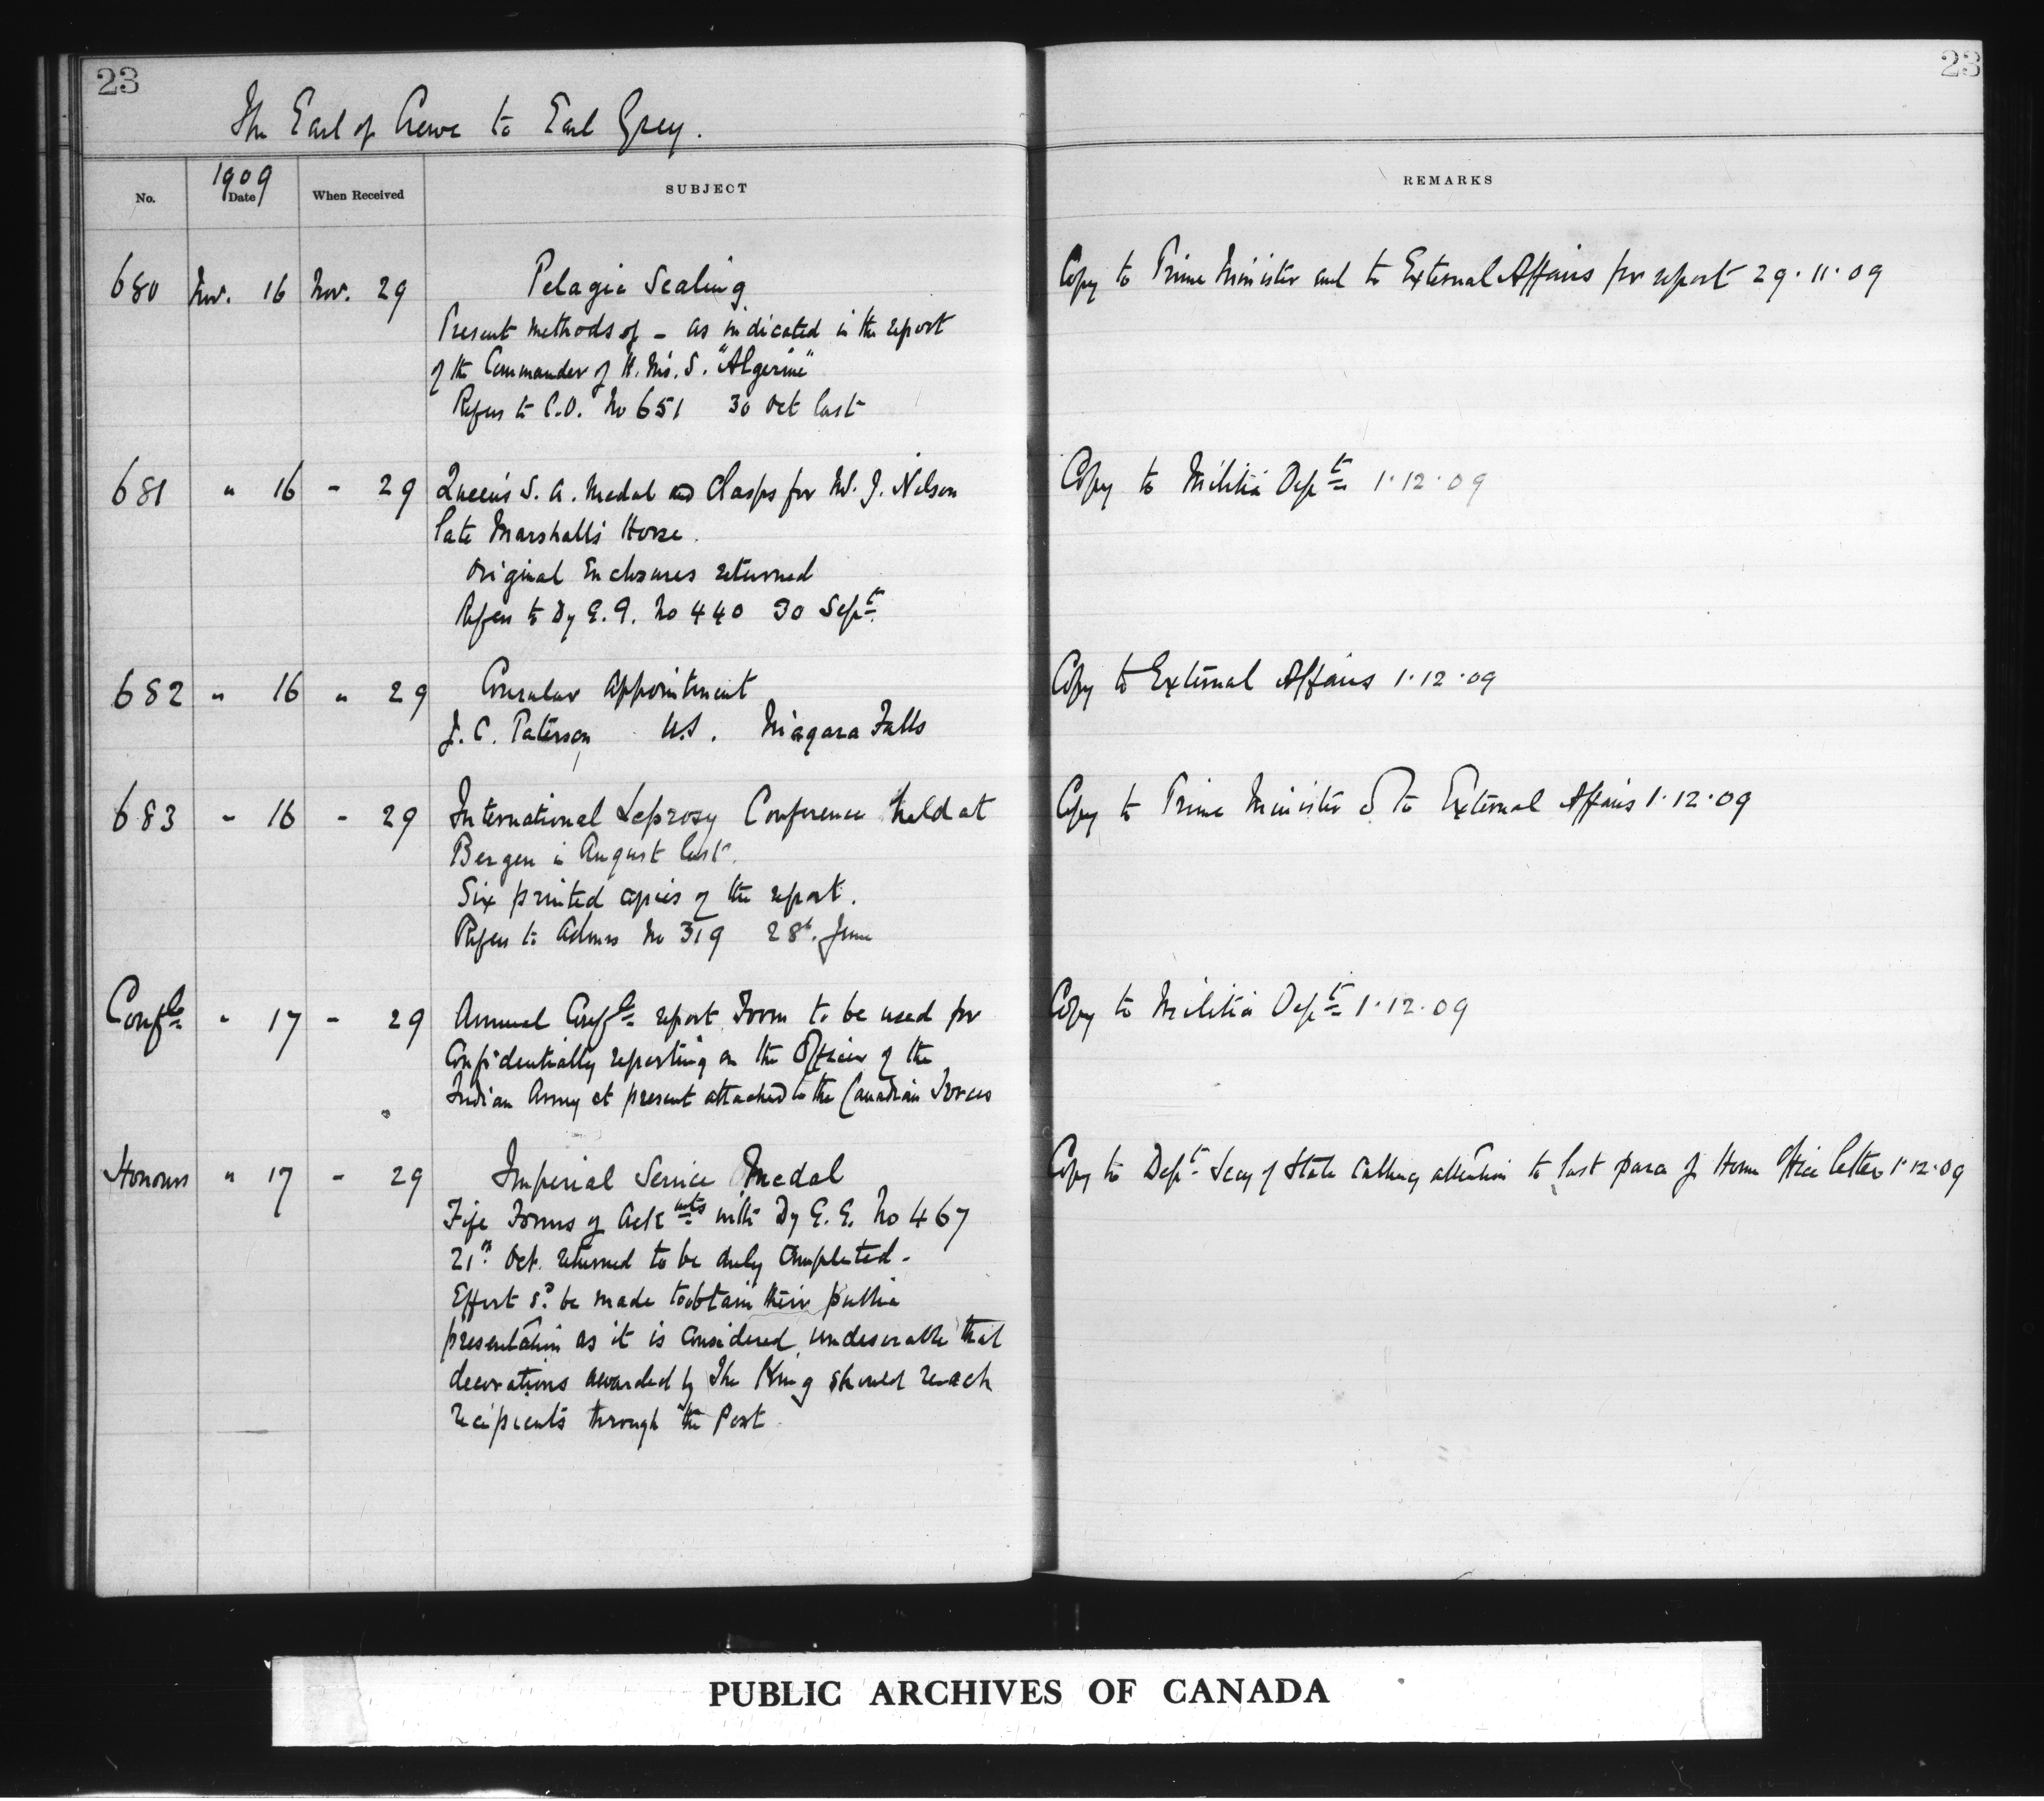 23
23
The Earl of Crewe to Earl Grey.
No.
1909
Date
When Received
SUBJECT
REMARKS
680 Nov. 16 Nov. 29 Pelagic Sealing Copy to Prime Minister and to External Affairs for report 29.11.09
Present methods of - as indicated in the report
of the Commander of H.M.S. "Algerine"
Refers to C.O. No 651 30 Oct last
681 " 16 - 29 Queen's S. A. Medal and Clasps for W. J. Nelson Copy to Militia Dept 1.12.09
late Marshall's Horse.
Original Enclosures returned
Refers to Dy G.G. No 440 30 Sept.
682 " 16 " 29 Consular Appointment Copy to External Affairs 1.12.09
J. C. Paterson U.S. Niagara Falls
683 " 16 - 29 International Leprosy Conference held at Copy to Prime Minister & to External Affairs 1.12.09
Bergen in August last.
Six printed copies of the report.
Refers to Admrs No 319 28th. June
Confle " 17 - 29 Annual Confle report Form to be used for Copy to Militia Dept 1.12.09
Confidentially reporting on the Officer of the
Indian Army at present attached to the Canadian Forces
Honours " 17 - 29 Imperial Service Medal Copy to Dept Secy of State calling attention to last para of Home Office letter 1.12.09
Forms of Ackmts with Dy G.G. No 467
21st Oct. returned to be duly completed.
Effort sd. be made to obtain their public
presentation as it is considered undesirable that
decorations awarded by The King should reach
recipients through the Post
PUBLIC ARCHIVES OF CANADA